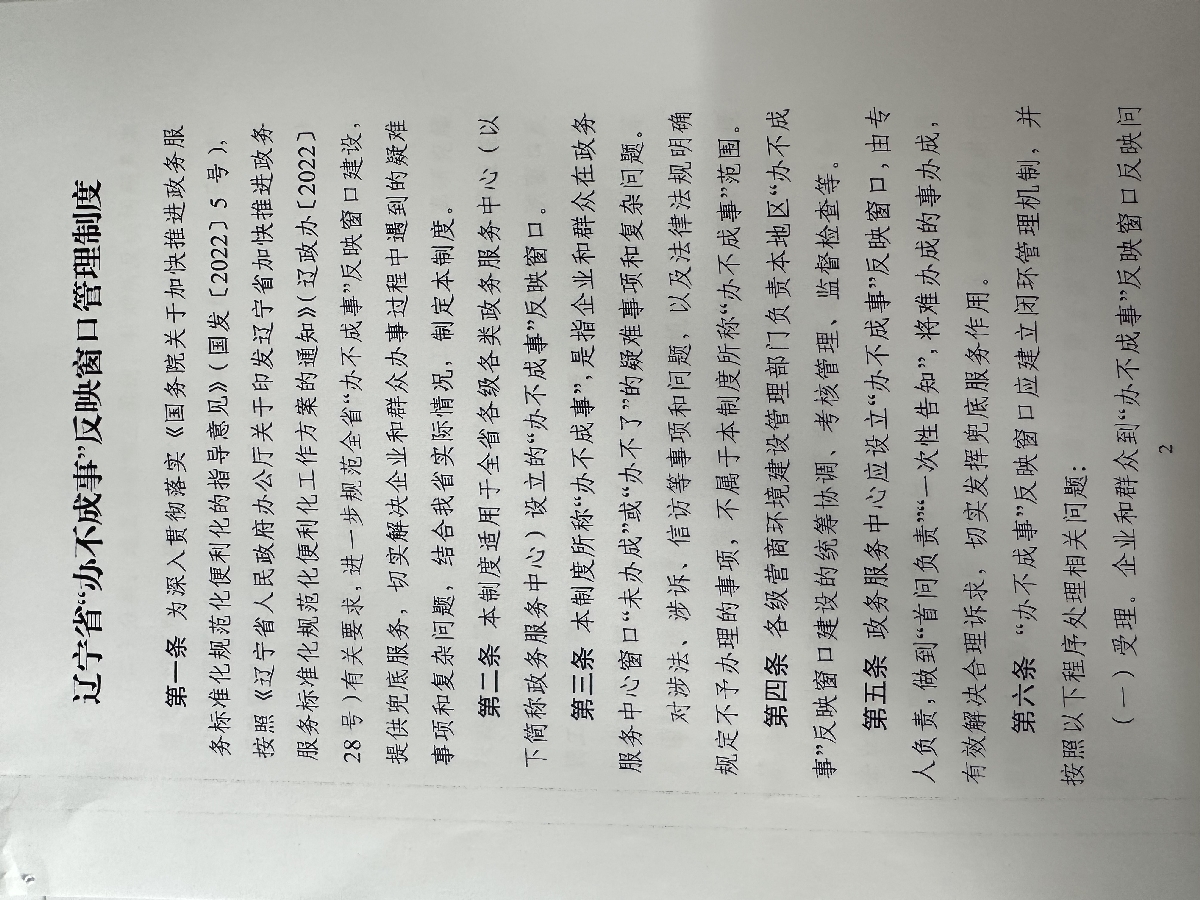 辽宁省“办不成事”反映窗口管理制度
第一条 为深入贯彻落实《国务院关于加快推进政务服
务标准化规范化便利化的指导意见》（国发〔2022〕5 号），
按照《辽宁省人民政府办公厅关于印发辽宁省加快推进政务
服务标准化规范化便利化工作方案的通知》（辽政办〔2022〕
28 号）有关要求，进一步规范全省“办不成事”反映窗口建设，
提供兜底服务，切实解决企业和群众办事过程中遇到的疑难
事项和复杂问题，结合我省实际情况，制定本制度。
第二条 本制度适用于全省各级各类政务服务中心（以
下简称政务服务中心）设立的“办不成事”反映窗口。
第三条 本制度所称“办不成事”，是指企业和群众在政务
服务中心窗口“未办成”或“办不了”的疑难事项和复杂问题。
对涉法、涉诉、信访等事项和问题，以及法律法规明确
规定不予办理的事项，不属于本制度所称“办不成事”范围。
第四条 各级营商环境建设管理部门负责本地区“办不成
事”反映窗口建设的统筹协调、考核管理、监督检查等。
第五条 政务服务中心应设立“办不成事”反映窗口，由专
人负责，做到“首问负责”“一次性告知”，将难办成的事办成，
有效解决合理诉求，切实发挥兜底服务作用。
第六条 “办不成事”反映窗口应建立闭环管理机制，并
按照以下程序处理相关问题：
（一）受理。企业和群众到“办不成事”反映窗口反映问
2